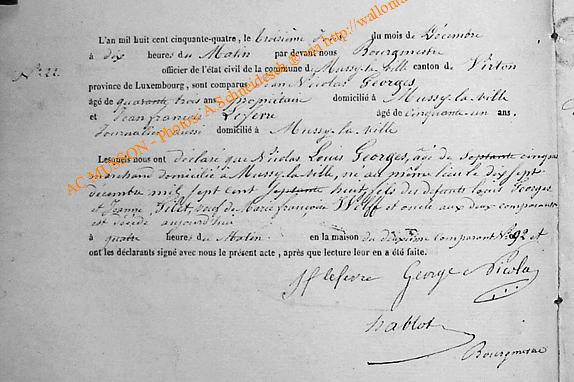 L'an mil huit cent cinquante-quatre, le troisième jour du mois de Décembre
à dix heures du Matin par devant nous Bourgmestre
N° 22. officier de l'état civil de la commune de Mussy-la-ville canton de Virton
province de Luxembourg, sont comparus Jean Nicolas Georges,
âgé de quarante trois ans, Propriétaire domicilié à Mussy-la-ville
et Jean François Lefevre âgé de cinquante un ans,
Journalier aussi domicilié à Mussy-la-ville
Lesquels nous ont déclaré que Nicolas Louis Georges, âgé de Septante cinq ans
marchand domicilié à Mussy-la-ville, né au même lieu le dix sept
décembre mil sept cent septante huit, fils des défunts Louis Georges
et Jeanne veuf de Marie Françoise Wolff et oncle aux deux comparants
est décédé aujourd'hui
à quatre heures du Matin en la maison du deuxième comparant N° 92 et
ont les déclarants signé avec nous le présent acte, après que lecture leur en a été faite.
Jf lefevre George Nicola
hablot
Bourgmestre
AC MUSSON - Photos: A.Schneidesch @ via http://wallonia